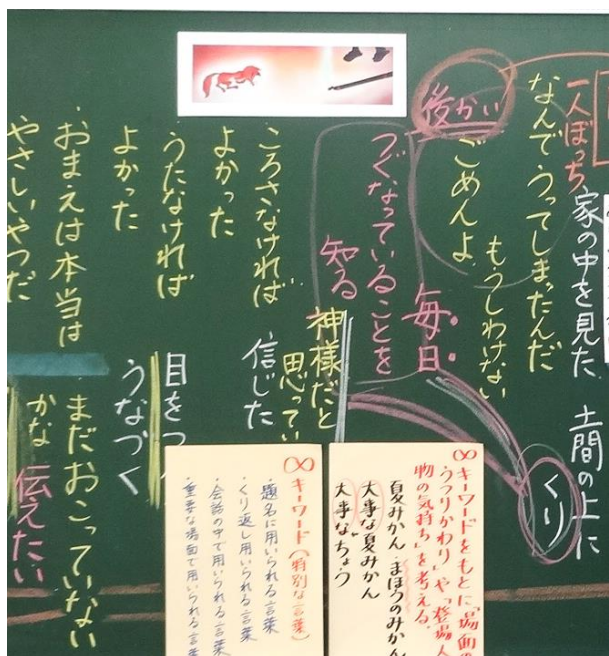 一人ぼっち
家の中を見た 土間の上に
くり
なんでうってしまったんだ
もうしわけない
後かい
ごめんよ
毎日
つぐなっていることを
知る
神様だと
思ってい
信じた
ころさなければ
よかった
うたなければ
よかった
目をつ
うなづく
おまえは本当は
やさしいやつだ
まだおこっていない
かな
伝えたい
キーワードをもとに「場面の
うつりかわり」や「登場人
物の気持ち」を考える。
夏みかん まほうのみかん
大事な夏みかん
大事なちょう
キーワード(特別な言葉)
・題名に用いられる言葉
・くり返し用いられる言葉
・会話の中で用いられる言葉
・重要な場面で用いられる言葉